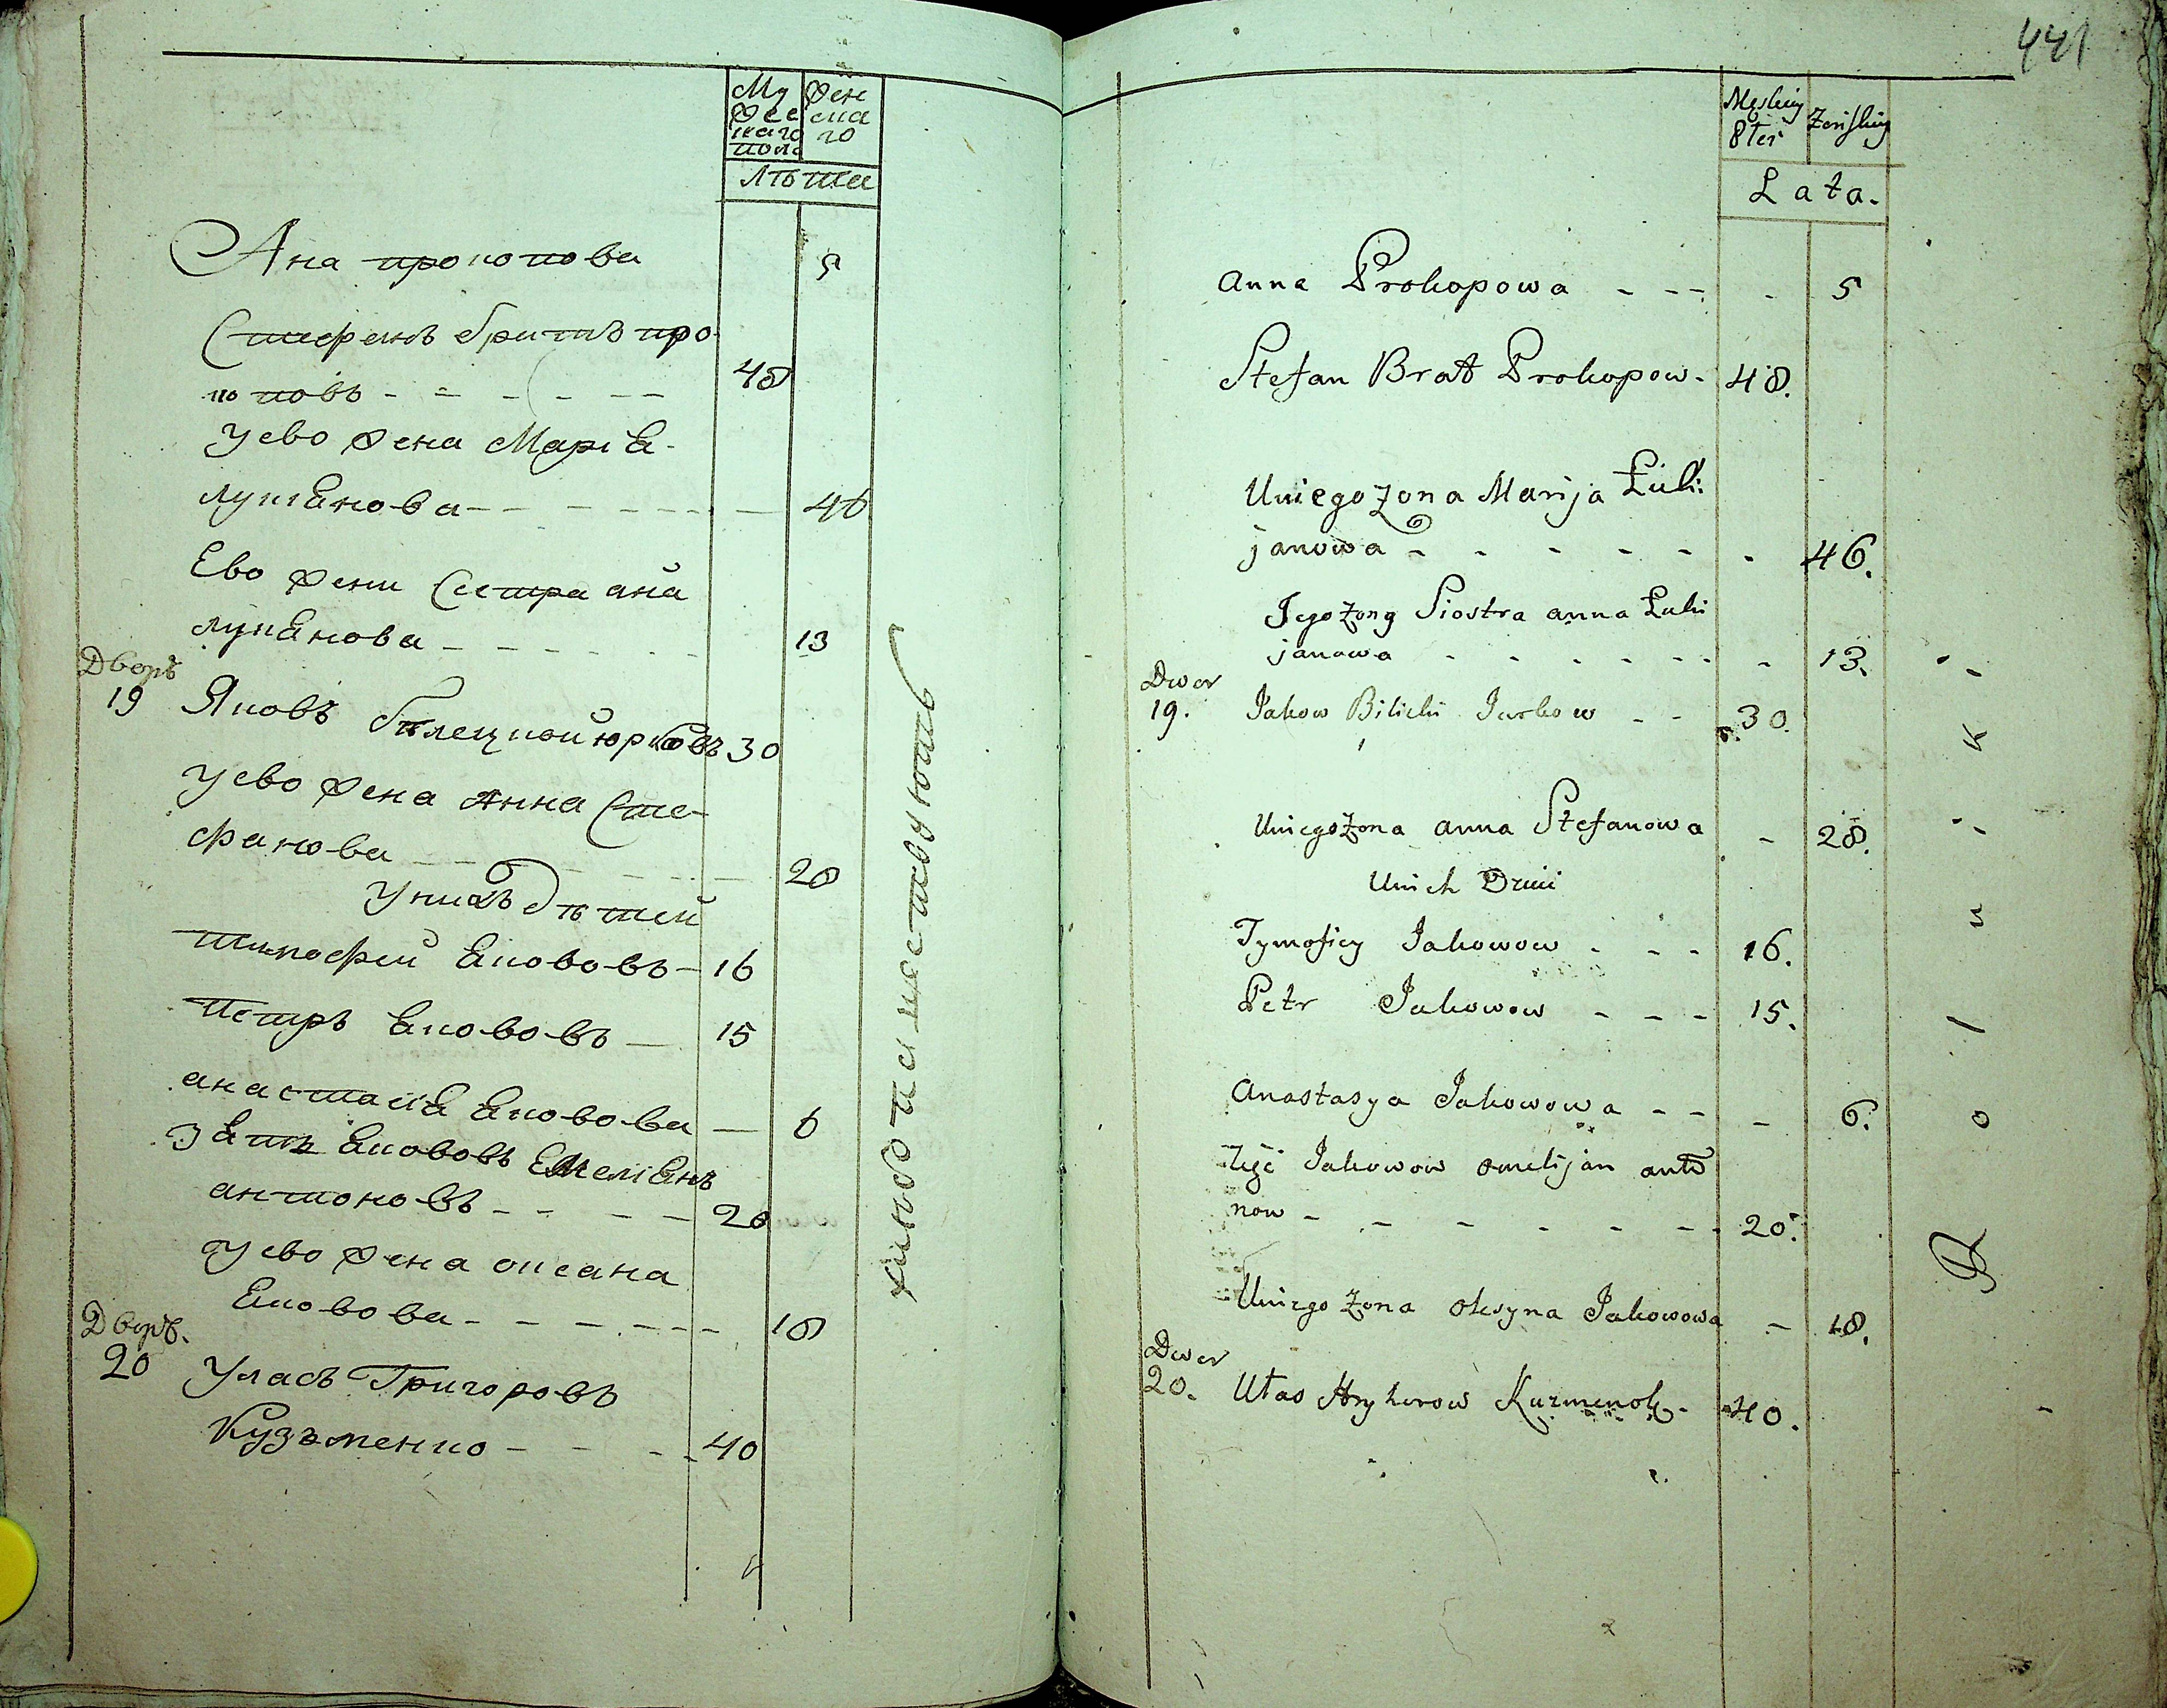 Му
жес
каго
пола
жен
ска
го
Лѣта
Ана прокопова 5
Стефенъ братъ про
коповъ - - - - - - 48
У ево жена Маріѧ
лукіѧнова - - - - - - 46
Ево жени Сестра ана
лукіѧнова - - - - - - 13
Дворъ
19 Яковъ бѣлецкой юрковъ 30
У ево жена Анна Сте-
фанова - - - - 28
У нихъ дѣтей
тимофей ѧкововъ - 16
петръ ѧкововъ - 15
анастасіѧ ѧковова - 6
зѧть ѧкововъ Емеліѧнъ
антоновъ - - - - 20
У ево жена оксана
ѧковова - - - - - - 18
Дворъ.
20 Уласъ Григоровъ
Кузьменко - - - - 40
441
Męskiey
Płci
Żeńskiey
Lata.
Anna Prokopowa - - - - 5
Stefan Brat Prokopow - 48.
U niego żona Marija Łuki
janowa - - - - - - 46.
Jego żony Siostra anna Łuki
janowa - - - - - - - 13.
Dwor
19. Jakow Bilicki Jurkow - - 30.
U niego żona anna Stefanowa - 28.
U nich Dzieci
Tymofiey Jakowow - - - 16.
Petr Jakowow - - - 15.
Anastasya Jakowowa - - - 6.
Zięć Jakowow omelijan anto
now - - - - - - 20.
U niego żona oksyna Jakowowa - 18.
Dwor
20. Ułas Hryhorow Kuzmenok - 40.